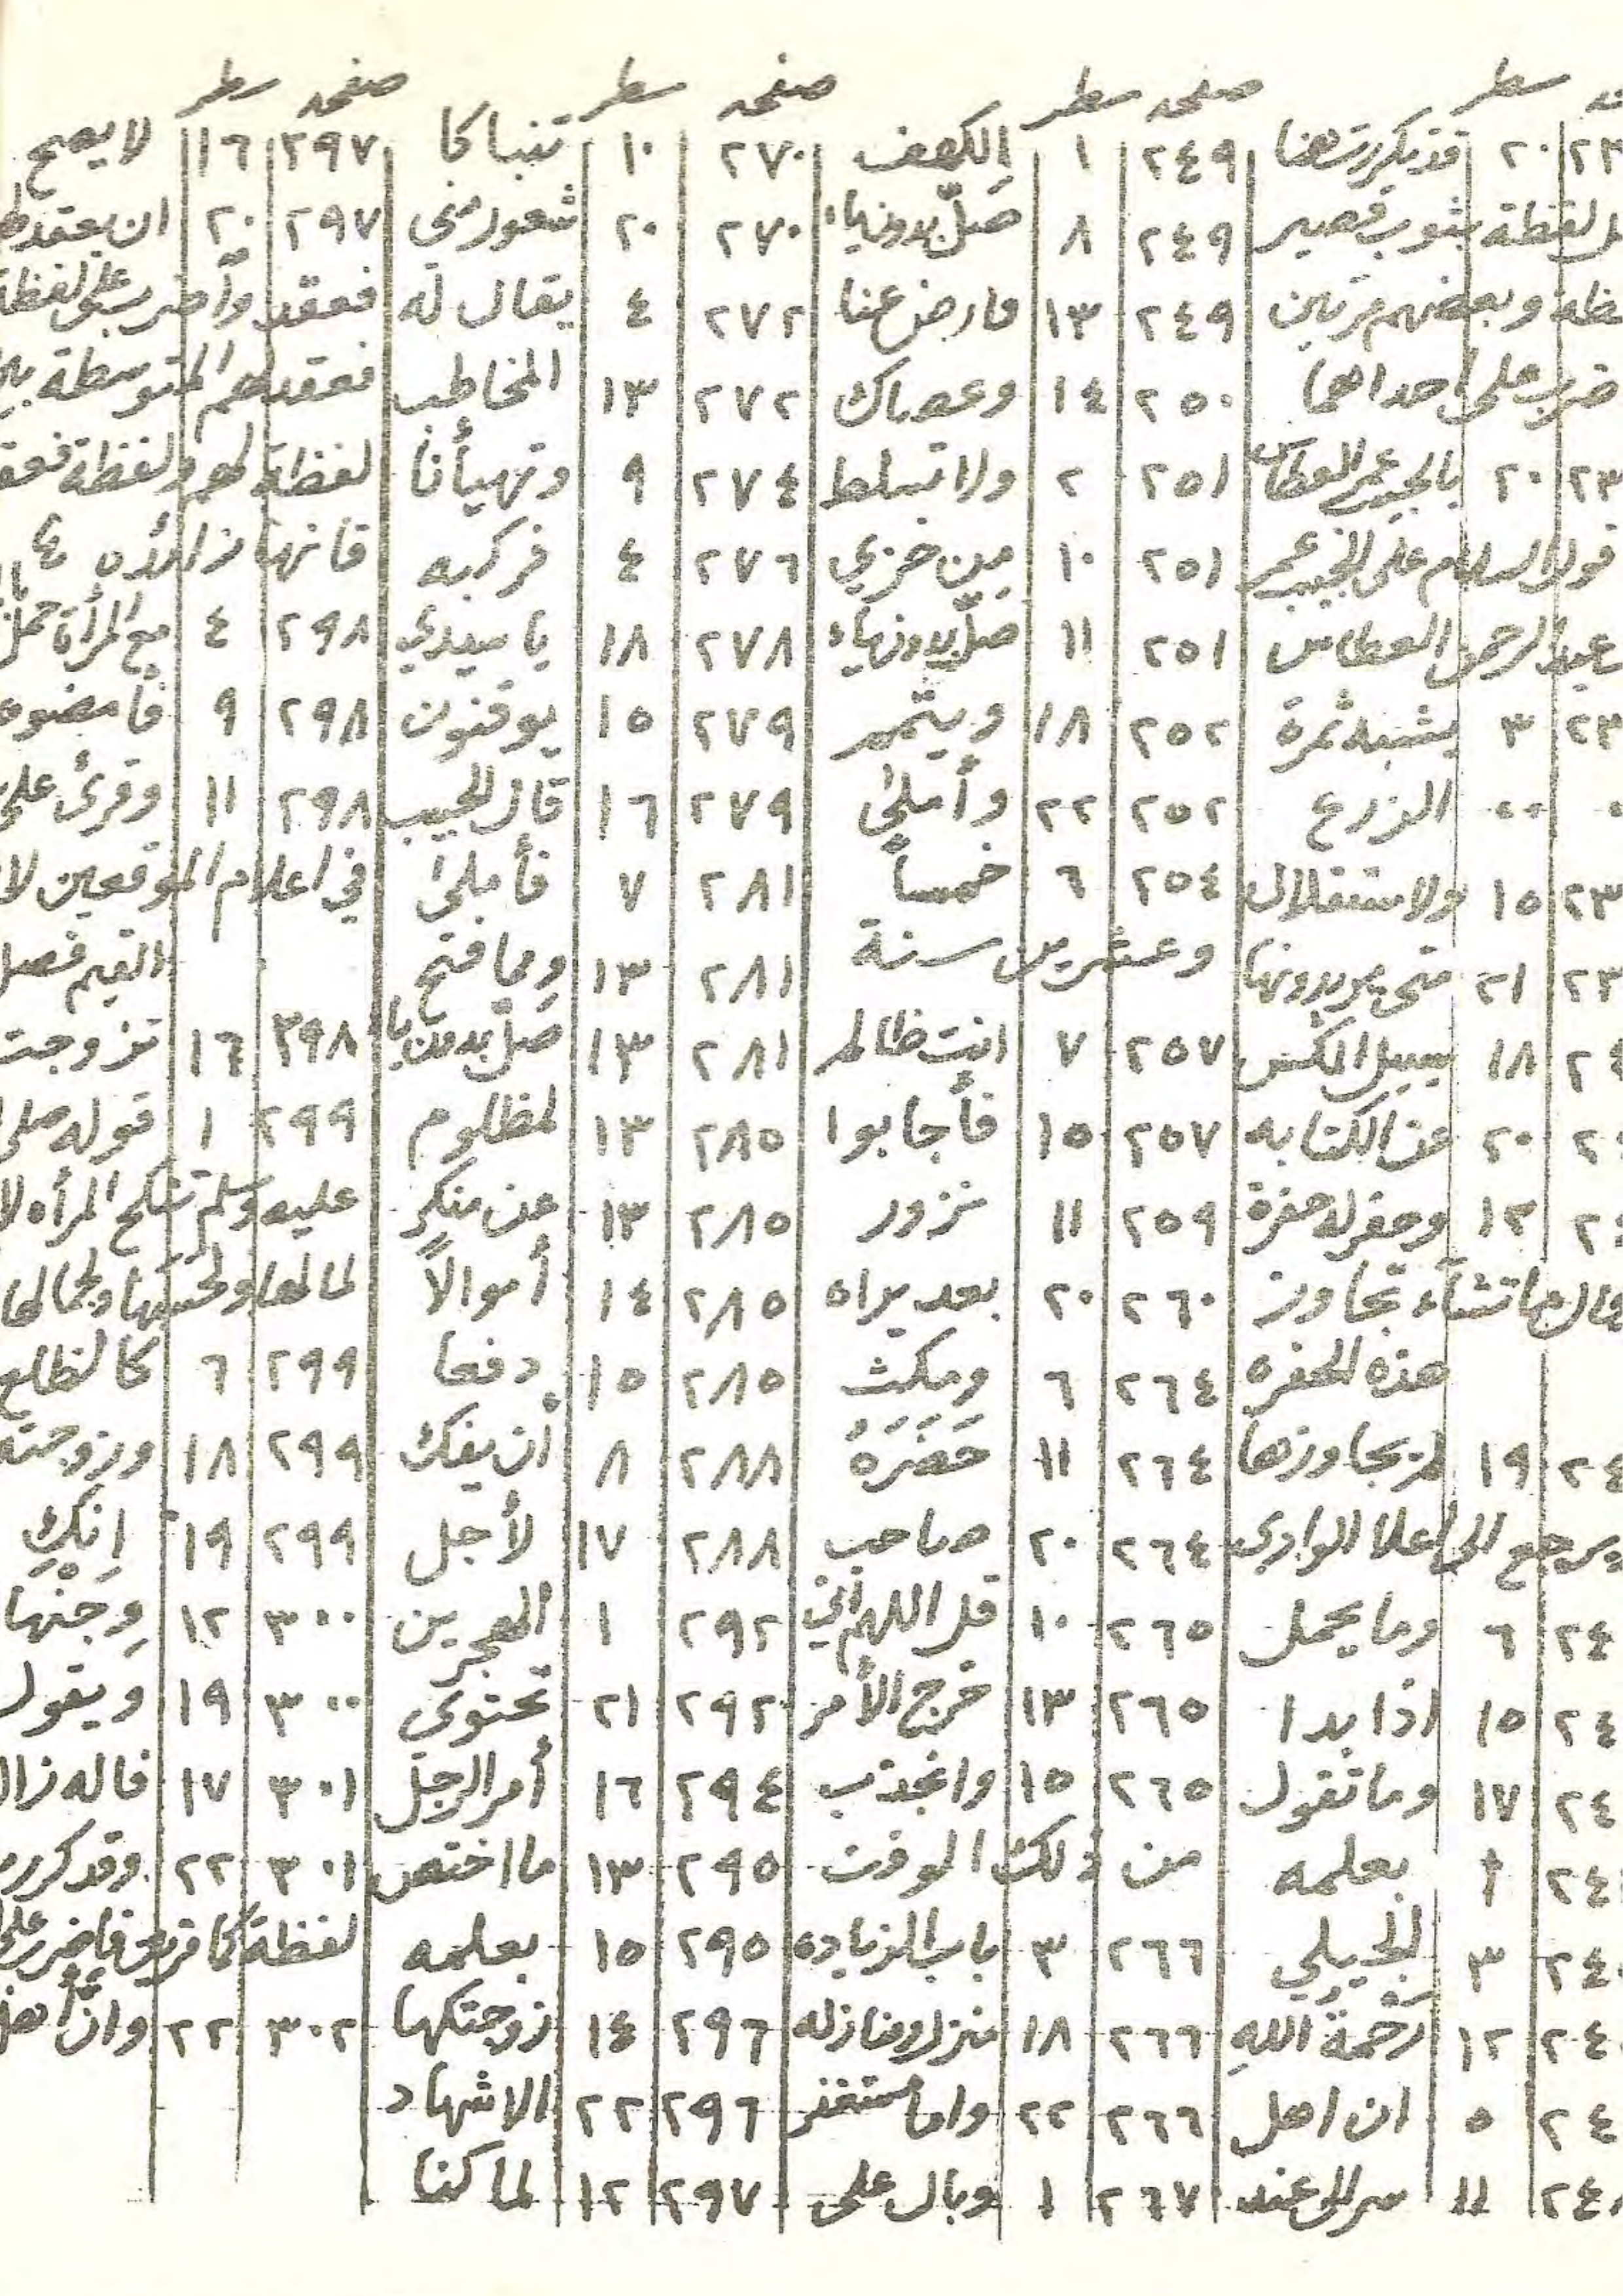 سطر صفحه سطر صفحه سطر صفحه سطر
٢٠ قد تكررت هنا ٢٤٩ ١ الكهف ٢٧٠ ١٠ تنباكا ٢٩٧ ١٦ لا يصح
لفظة بثوب قصير ٢٤٩ ٨ صلّ بدون ياء ٢٧٠ ٢٠ شعور مني ٢٩٧ ٢٠ ان يعقد
وبعضهم مرتين ٢٤٩ ١٣ فارض عنا ٢٧٢ ٤ يقال له فعقد واضرب على لفظة
ضرب على احداهما ٢٥٠ ١٤ وعصاك ٢٧٢ ١٣ المخاطب فعقد لهم المتوسطة
٢٠ بالحبيب عمر العطاس ٢٥١ ٢ ولا تسلط ٢٧٤ ٩ وتهيأنا لفظة لهم ولفظة
قوله السلام على الحبيب عمر ٢٥١ ١٠ من خزي ٢٧٦ ٤ فركبه فانها زائده
عبد الرحمن العطاس ٢٥١ ١١ صلّ بدون ياء ٢٧٨ ١٨ يا سيدي ٢٩٨ ٤ مع المرأة
٣ يشبه ثمرة ٢٥٢ ١٨ ويتمم ٢٧٩ ١٥ يوقنون ٢٩٨ ٩
الزرع ٢٥٢ ٢٢ وأملى ٢٧٩ ١٦ قال الحبيب ٢٩٨ ١١ وقرئ على
١٥ ولاستقلال ٢٥٤ ٦ خمساً ٢٨١ ٧ فأملى في اعلام الموقعين
٢١ متى يريدونها وعشرين سنة ٢٨١ ١٣ ومما فتح القيم فصل
١٨ سبيل الكشف ٢٥٧ ٧ انت ظالم ٢٨١ ١٣ صل بدون يا ٢٩٨ ١٦ تزوجت
٢٠ عن الكتابه ٢٥٧ ١٥ فأجابوا ٢٨٥ ١٣ لمظلوم ٢٩٩ ١ قوله صلى
١٢ وحفر له حفرة ٢٥٩ ١١ نزور ٢٨٥ ١٣ عن منكرٍ عليه وسلم تنكح المرأه
ما تشاء تجاوز ٢٦٠ ٢٠ بعد يراه ٢٨٥ ١٤ أموالاً لمالها ولحسبها ولجمالها
هذه الحفره ٢٦٤ ٦ ومكث ٢٨٥ ١٥ دفعا ٢٩٩ ٦
١٩ لم يجاوزها ٢٦٤ ١١ حَضَرَهُ ٢٨٨ ٨ أن يفك ٢٩٩ ١٨ وزوجته
يرجع الى اعلا الوادي ٢٦٤ ٢٠ صاحب ٢٨٨ ١٧ لأجل ٢٩٩ ١٩ اِنكِ
٦ وما يحمل ٢٦٥ ١٠ قل اللهم اني ٢٩٢ ١ الهجرين ٣٠٠ ١٢ وجنها
١٥ اذا بدا ٢٦٥ ١٣ خرج الأمر ٢٩٢ ٢١ تحتوي ٣٠٠ ١٩ ويقول
١٧ وما تقول ٢٦٥ ١٥ وانجذب ٢٩٤ ١٦ أمر الرجل ٣٠١ ١٧
١ بعلمه من ذلك الوقت ٢٩٥ ١٣ ما اختص ٣٠١ ٢٢ وقد كرر
٣ الجيلي ٢٦٦ ٣ باب الزياده ٢٩٥ ١٥ بعلمه لفظة
١٢ رَحْمَةُ اللهِ ٢٦٦ ١٨ منزلا ومنازله ٢٩٦ ١٤ زوجتكها ٣٠٢ ٢٢ وانّ
٥ ان اهل ٢٦٦ ٢٢ واما مستغفر ٢٩٦ ٢٢ الاشهاد
١١ عند ٢٦٧ ١ وبال على ٢٩٧ ١٢ لما كنا